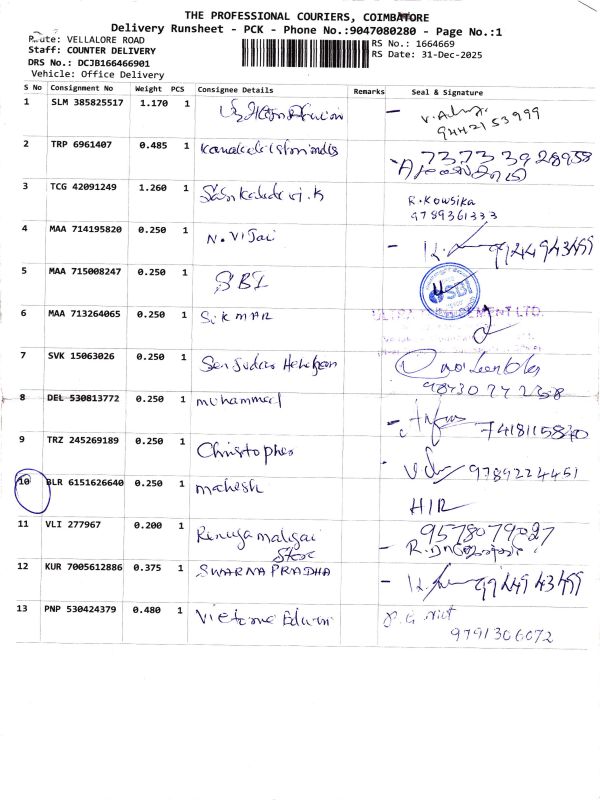 THE PROFESSIONAL COURIERS, COIMBATORE
Delivery Runsheet - PCK - Phone No.:9047080280 - Page No.:1
Route: VELLALORE ROAD
RS No.: 1664669
Staff: COUNTER DELIVERY
RS Date: 31-Dec-2025
DRS No.: DCJB166466901
Vehicle: Office Delivery
S No Consignment No Weight PCS Consignee Details Remarks Seal & Signature
1 SLM 385825517 1.170 1
9442153999
2 TRP 6961407 0.485 1
73733928958
3 TCG 42091249 1.260 1 R.Kowsika
9789361333
4 MAA 714195820 0.250 1 N.Vijai 9944943499
5 MAA 715008247 0.250 1 SBI SBI
6 MAA 713264065 0.250 1 Sik MAR
7 SVK 15063026 0.250 1
8 DEL 530813772 0.250 1 muhammed 7418115840
9 TRZ 245269189 0.250 1 Christopher 9789224451
10 BLR 6151626640 0.250 1 mahesh HIR
11 VLI 277967 0.200 1 Renuga maligai 9578079027
Store
12 KUR 7005612886 0.375 1 SWARNA PRADHA 9944943499
13 PNP 530424379 0.480 1
9791306072